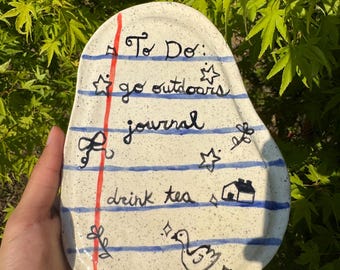 To Do:
go outdoors
journal
drink tea